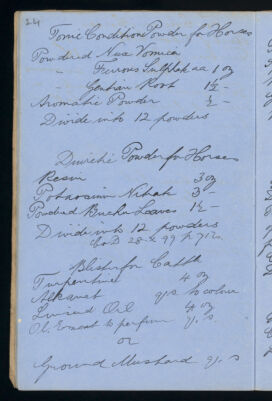 24
Tonic Condition Powder for Horses
Powdered Nux Vomica
" Ferrous Sulphate aa 1 oz
" Gentian Root 1½ -
Aromatic Powder ½ -
Divide into 12 powders
Diuretic Powder for Horses
Resin 3 oz
Potassium Nitrate 3 -
Powdered Buchu Leaves 1½ -
Divide into 12 powders
28 99
Blister for Cattle
Turpentine 4 oz
Alkanet q.s to colour
Linseed Oil 4 oz
Ol. to perfum q. s
or
Ground Mustard q. s